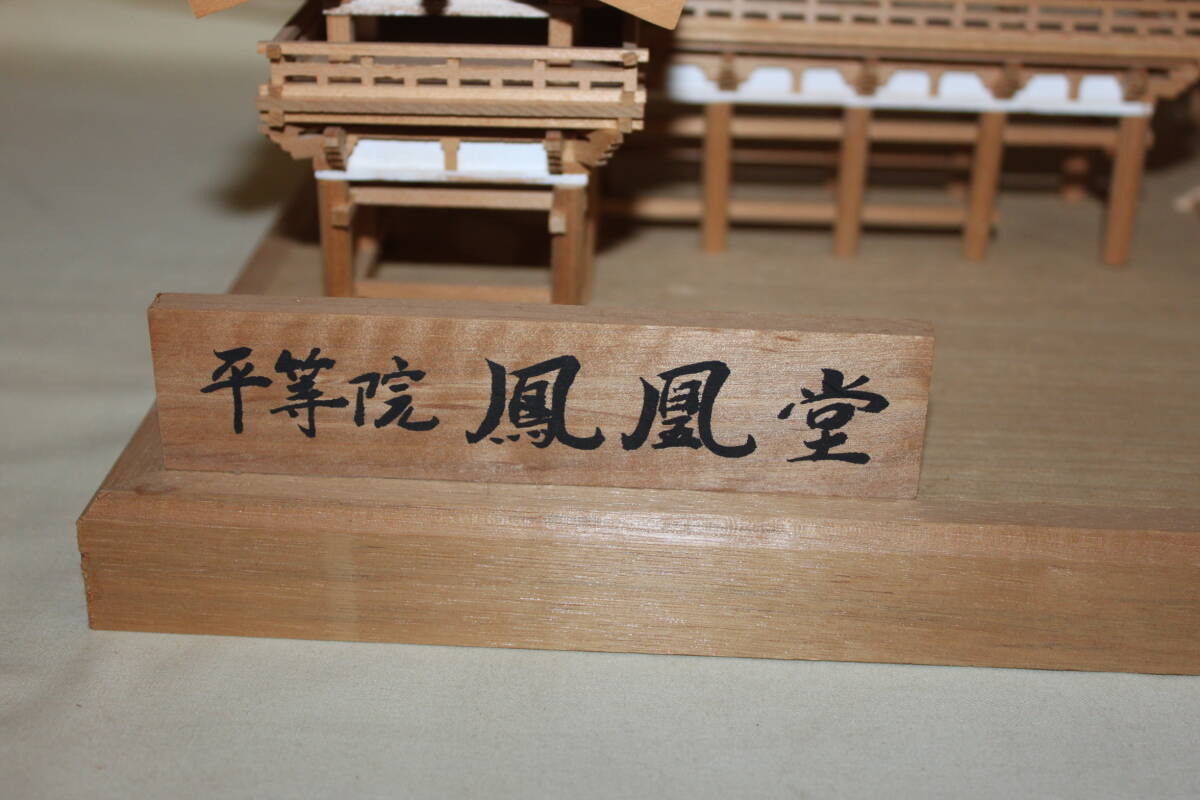 平等院 鳳凰堂